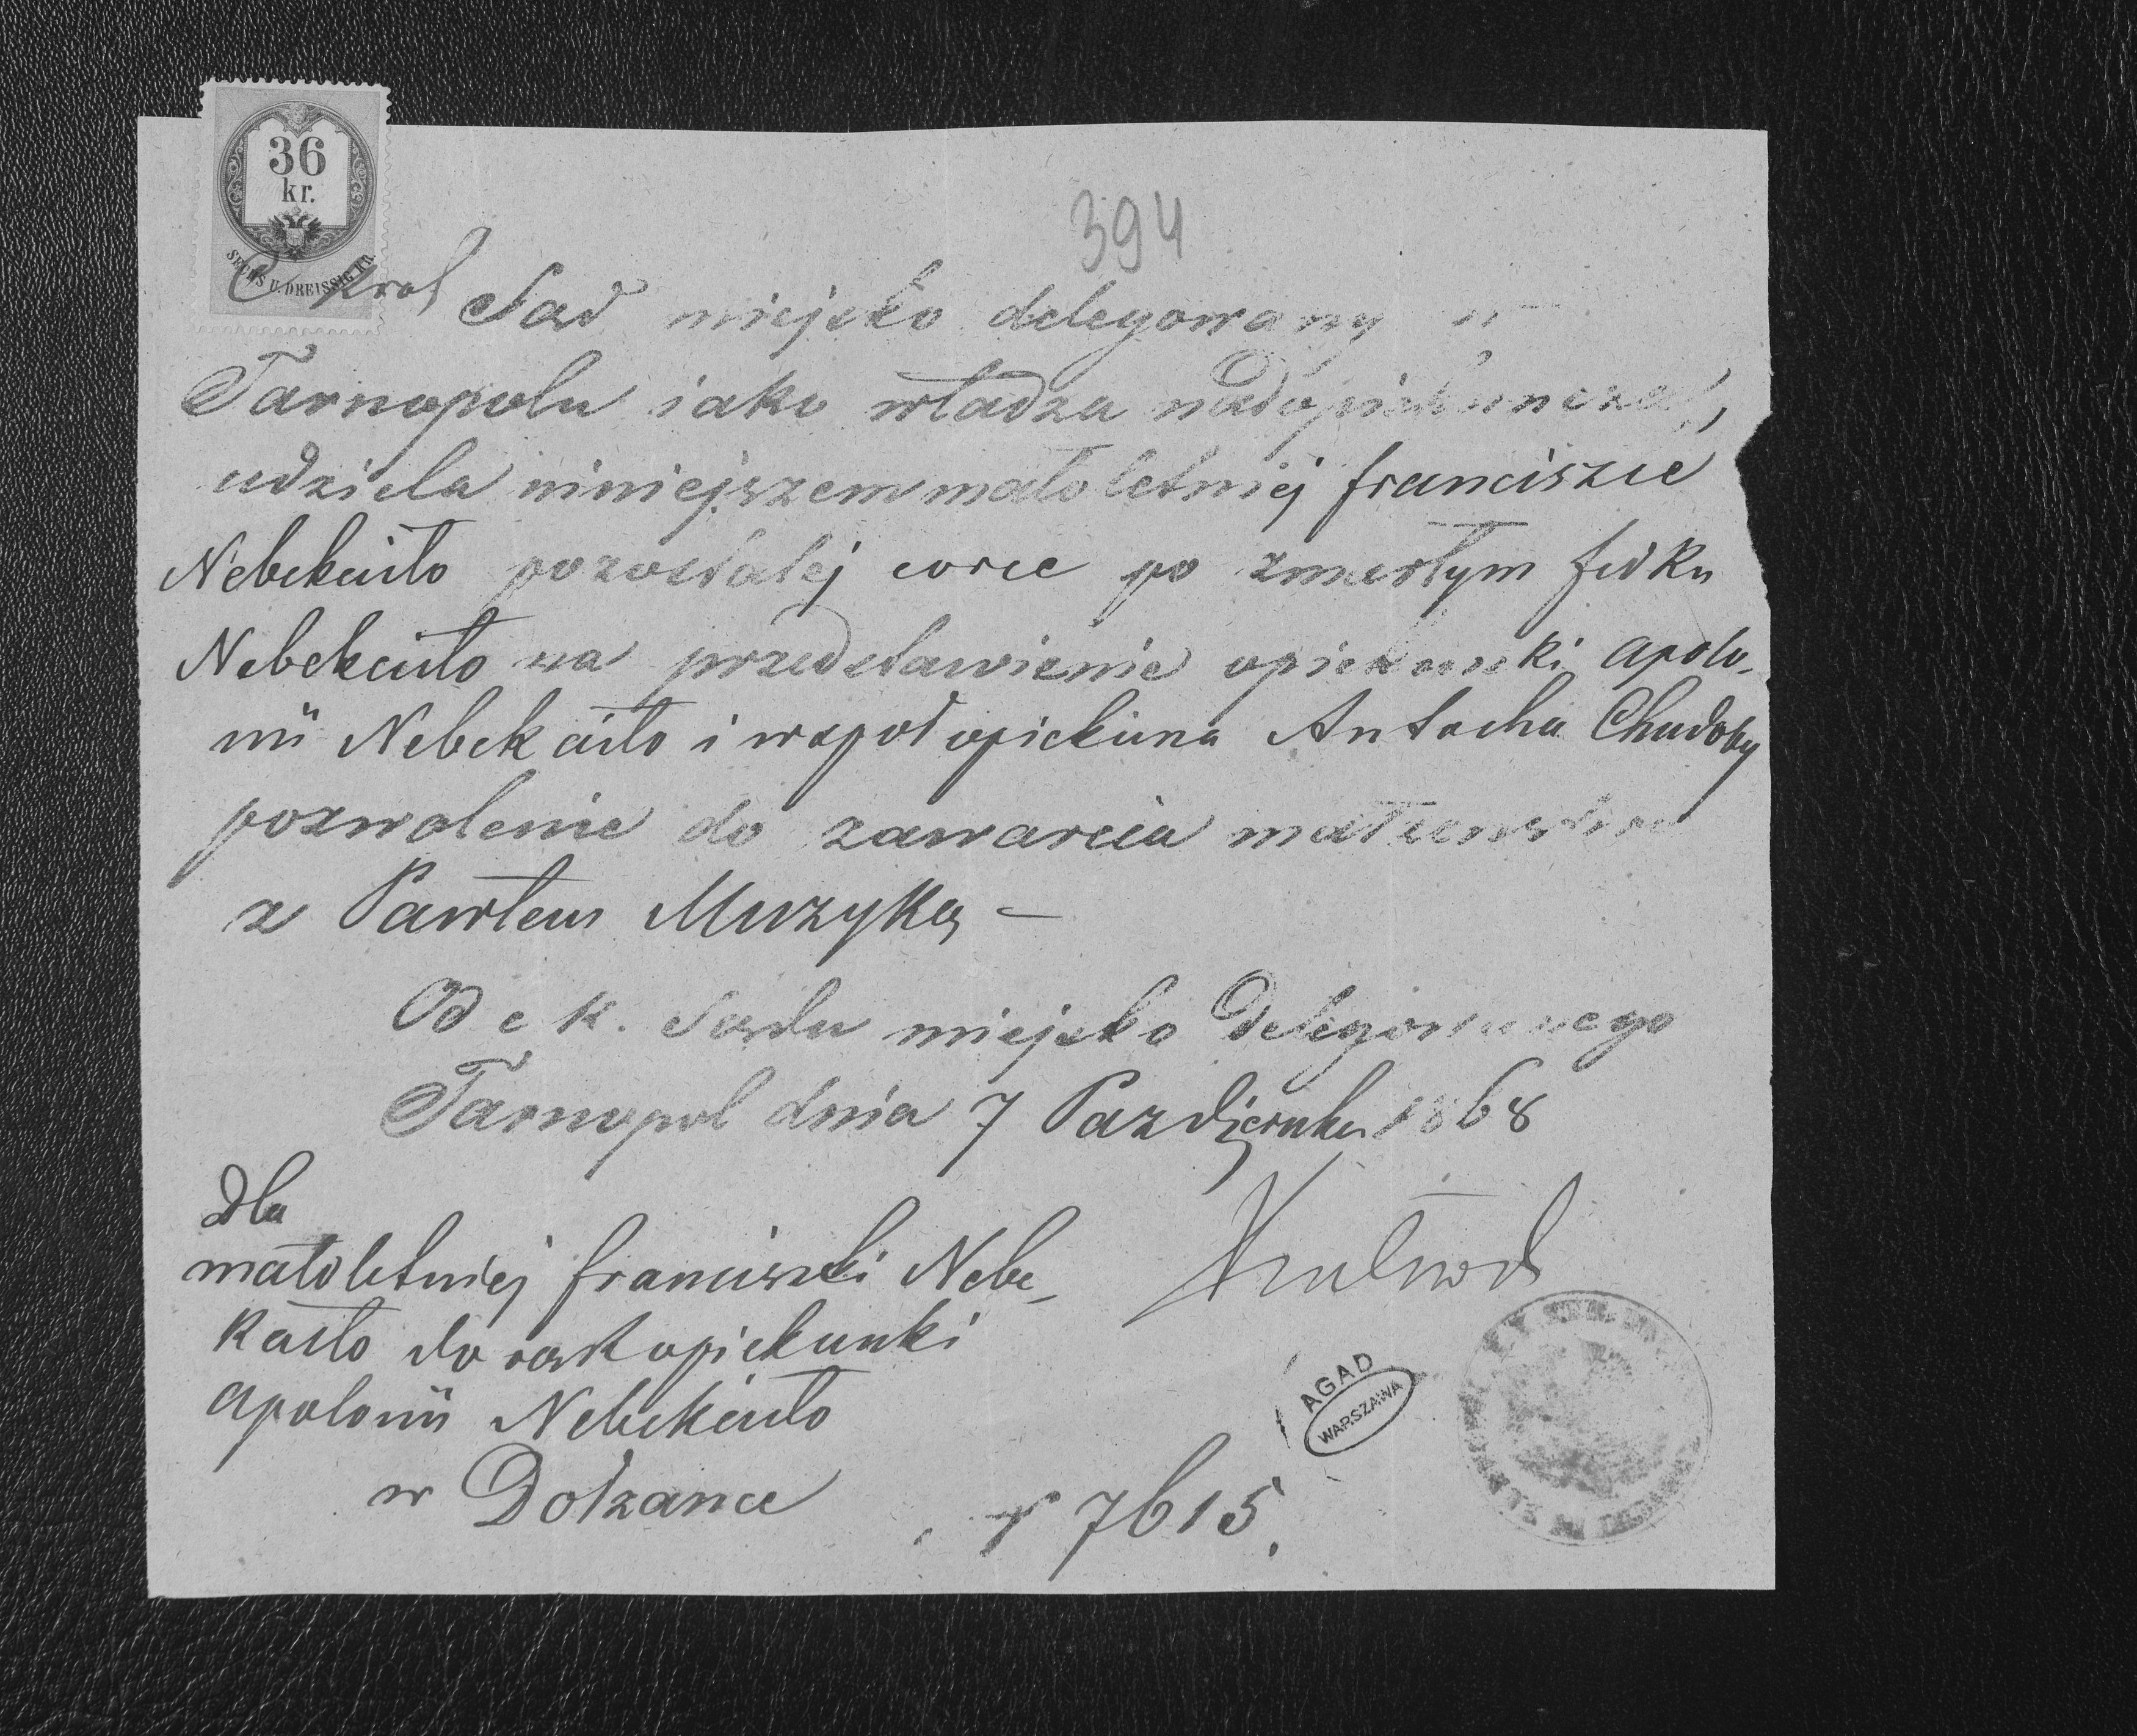 36
kr.
SECHS U. DREISSIG KR.
394
C. Krol Sąd miejsko delegowany w
Tarnopolu iako władza nadopiekuncza,
udziela niniejszem małoletniej franciszce
Nebekaiło pozostałej corce po zmarłym fedku
Nebekaiło na przedstawienie opiekunki Apolo-
nii Nebekaiło i wspołopiekuna Antocha Chudoby
pozwolenie do zawarcia małżenstwa
z Pawłem Muzyką –
Od c k. Sądu miejsko Delegowanego
Tarnopol dnia 7 Pazdziernika 1868
dla
małoletniej franciszki Nebe-
kaiło do rąk opiekunki
Apolonii Nebekaiło
w Dołzance
7615.
AGAD
WARSZAWA